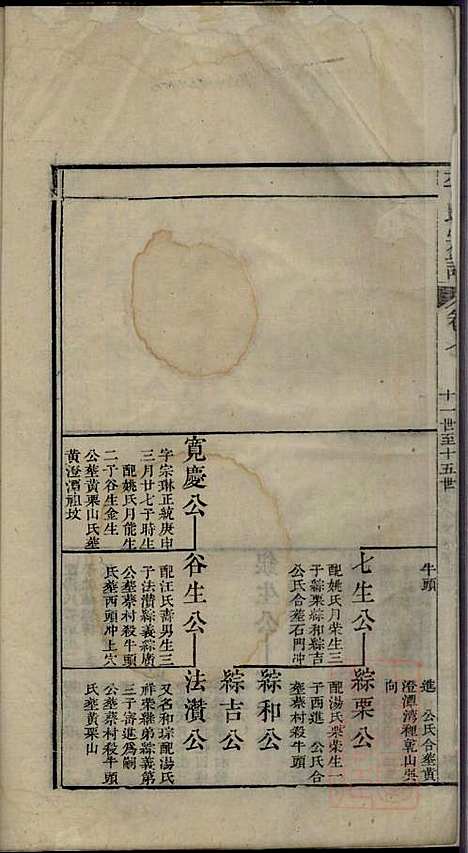 氏宗譜
卷
十一世至十五世
牛頭
進 公氏合葬黃
澄潭湾裡乾山巽
向
七生公
綜栗公
配姚氏月柴生三
子綜栗綜和綜吉
公氏合葬石門冲
配湯氏栗柴生一
子西進 公氏合
葬蔡村殺牛頭
綜和公
綜吉公
寬慶公
谷生公
法瓚公
字宗琳正統庚申
三月廿七子時生
配姚氏月能生
二子谷生金生
公葬黃栗山氏葬
黃澄潭祖坟
配汪氏壽男生三
子法瓚綜義綜廣
公葬蔡村殺牛頭
氏葬西頭冲上穴
又名和琮配湯氏
祥柴繼弟綜義第
三子富進為嗣
公葬蔡村殺牛頭
氏葬黃栗山